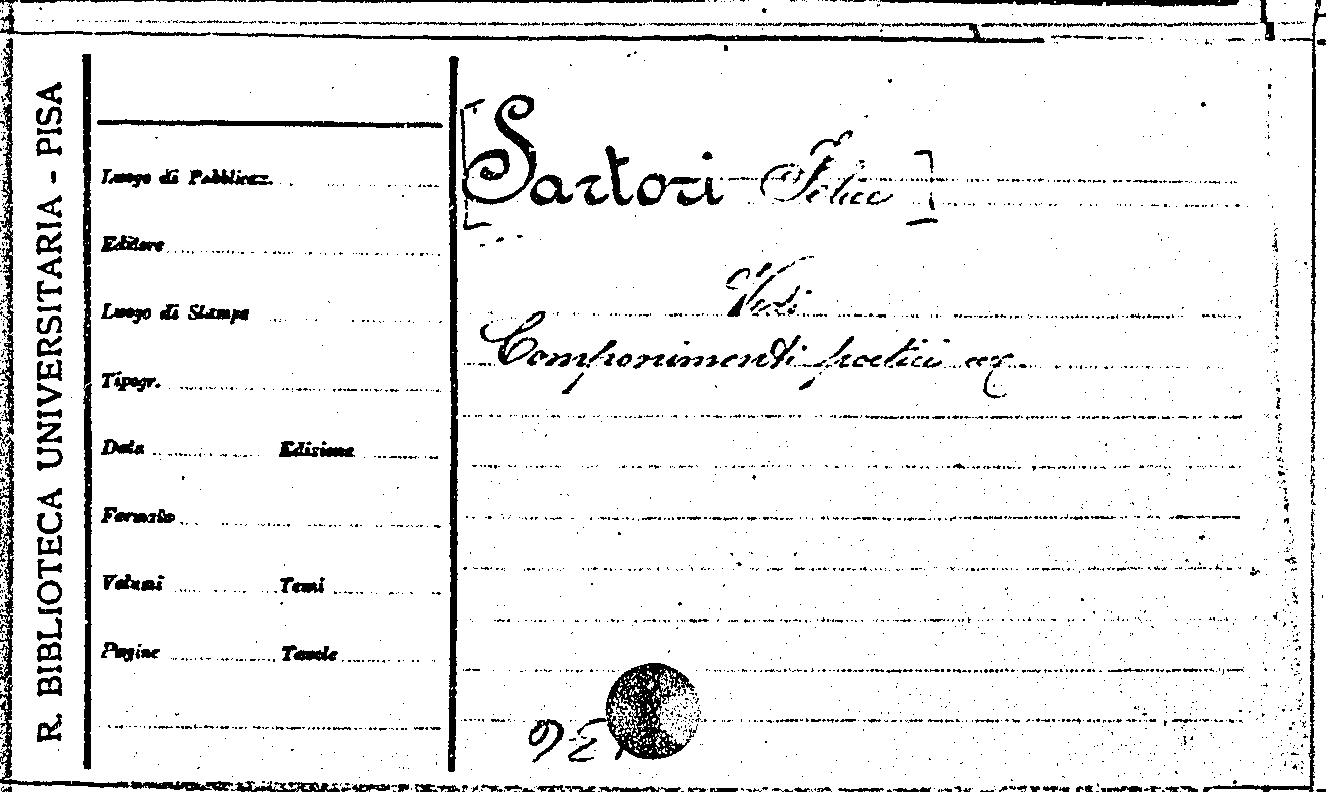 R. BIBLIOTECA UNIVERSITARIA - PISA
Luogo di Pubblicaz.
Editore
Luogo di Stampa
Tipogr.
Data Edizione
Formato
Volumi Tomi
Pagine Tavole
[Sartori Felice]
Vedi
Componimenti poetici